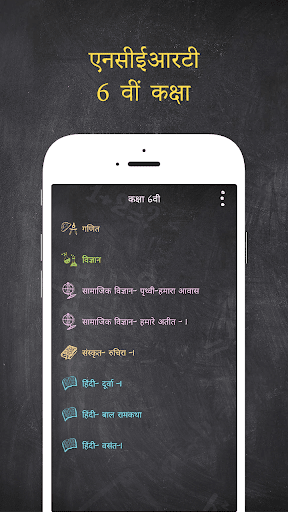 एनसीईआरटी
6 वीं कक्षा
कक्षा 6वी
गणित
विज्ञान
सामाजिक विज्ञान- पृथ्वी-हमारा आवास
सामाजिक विज्ञान- हमारे अतीत - I
संस्कृत- रुचिरा -I
हिंदी- दूर्वा -I
हिंदी- बाल रामकथा
हिंदी- वसंत-I